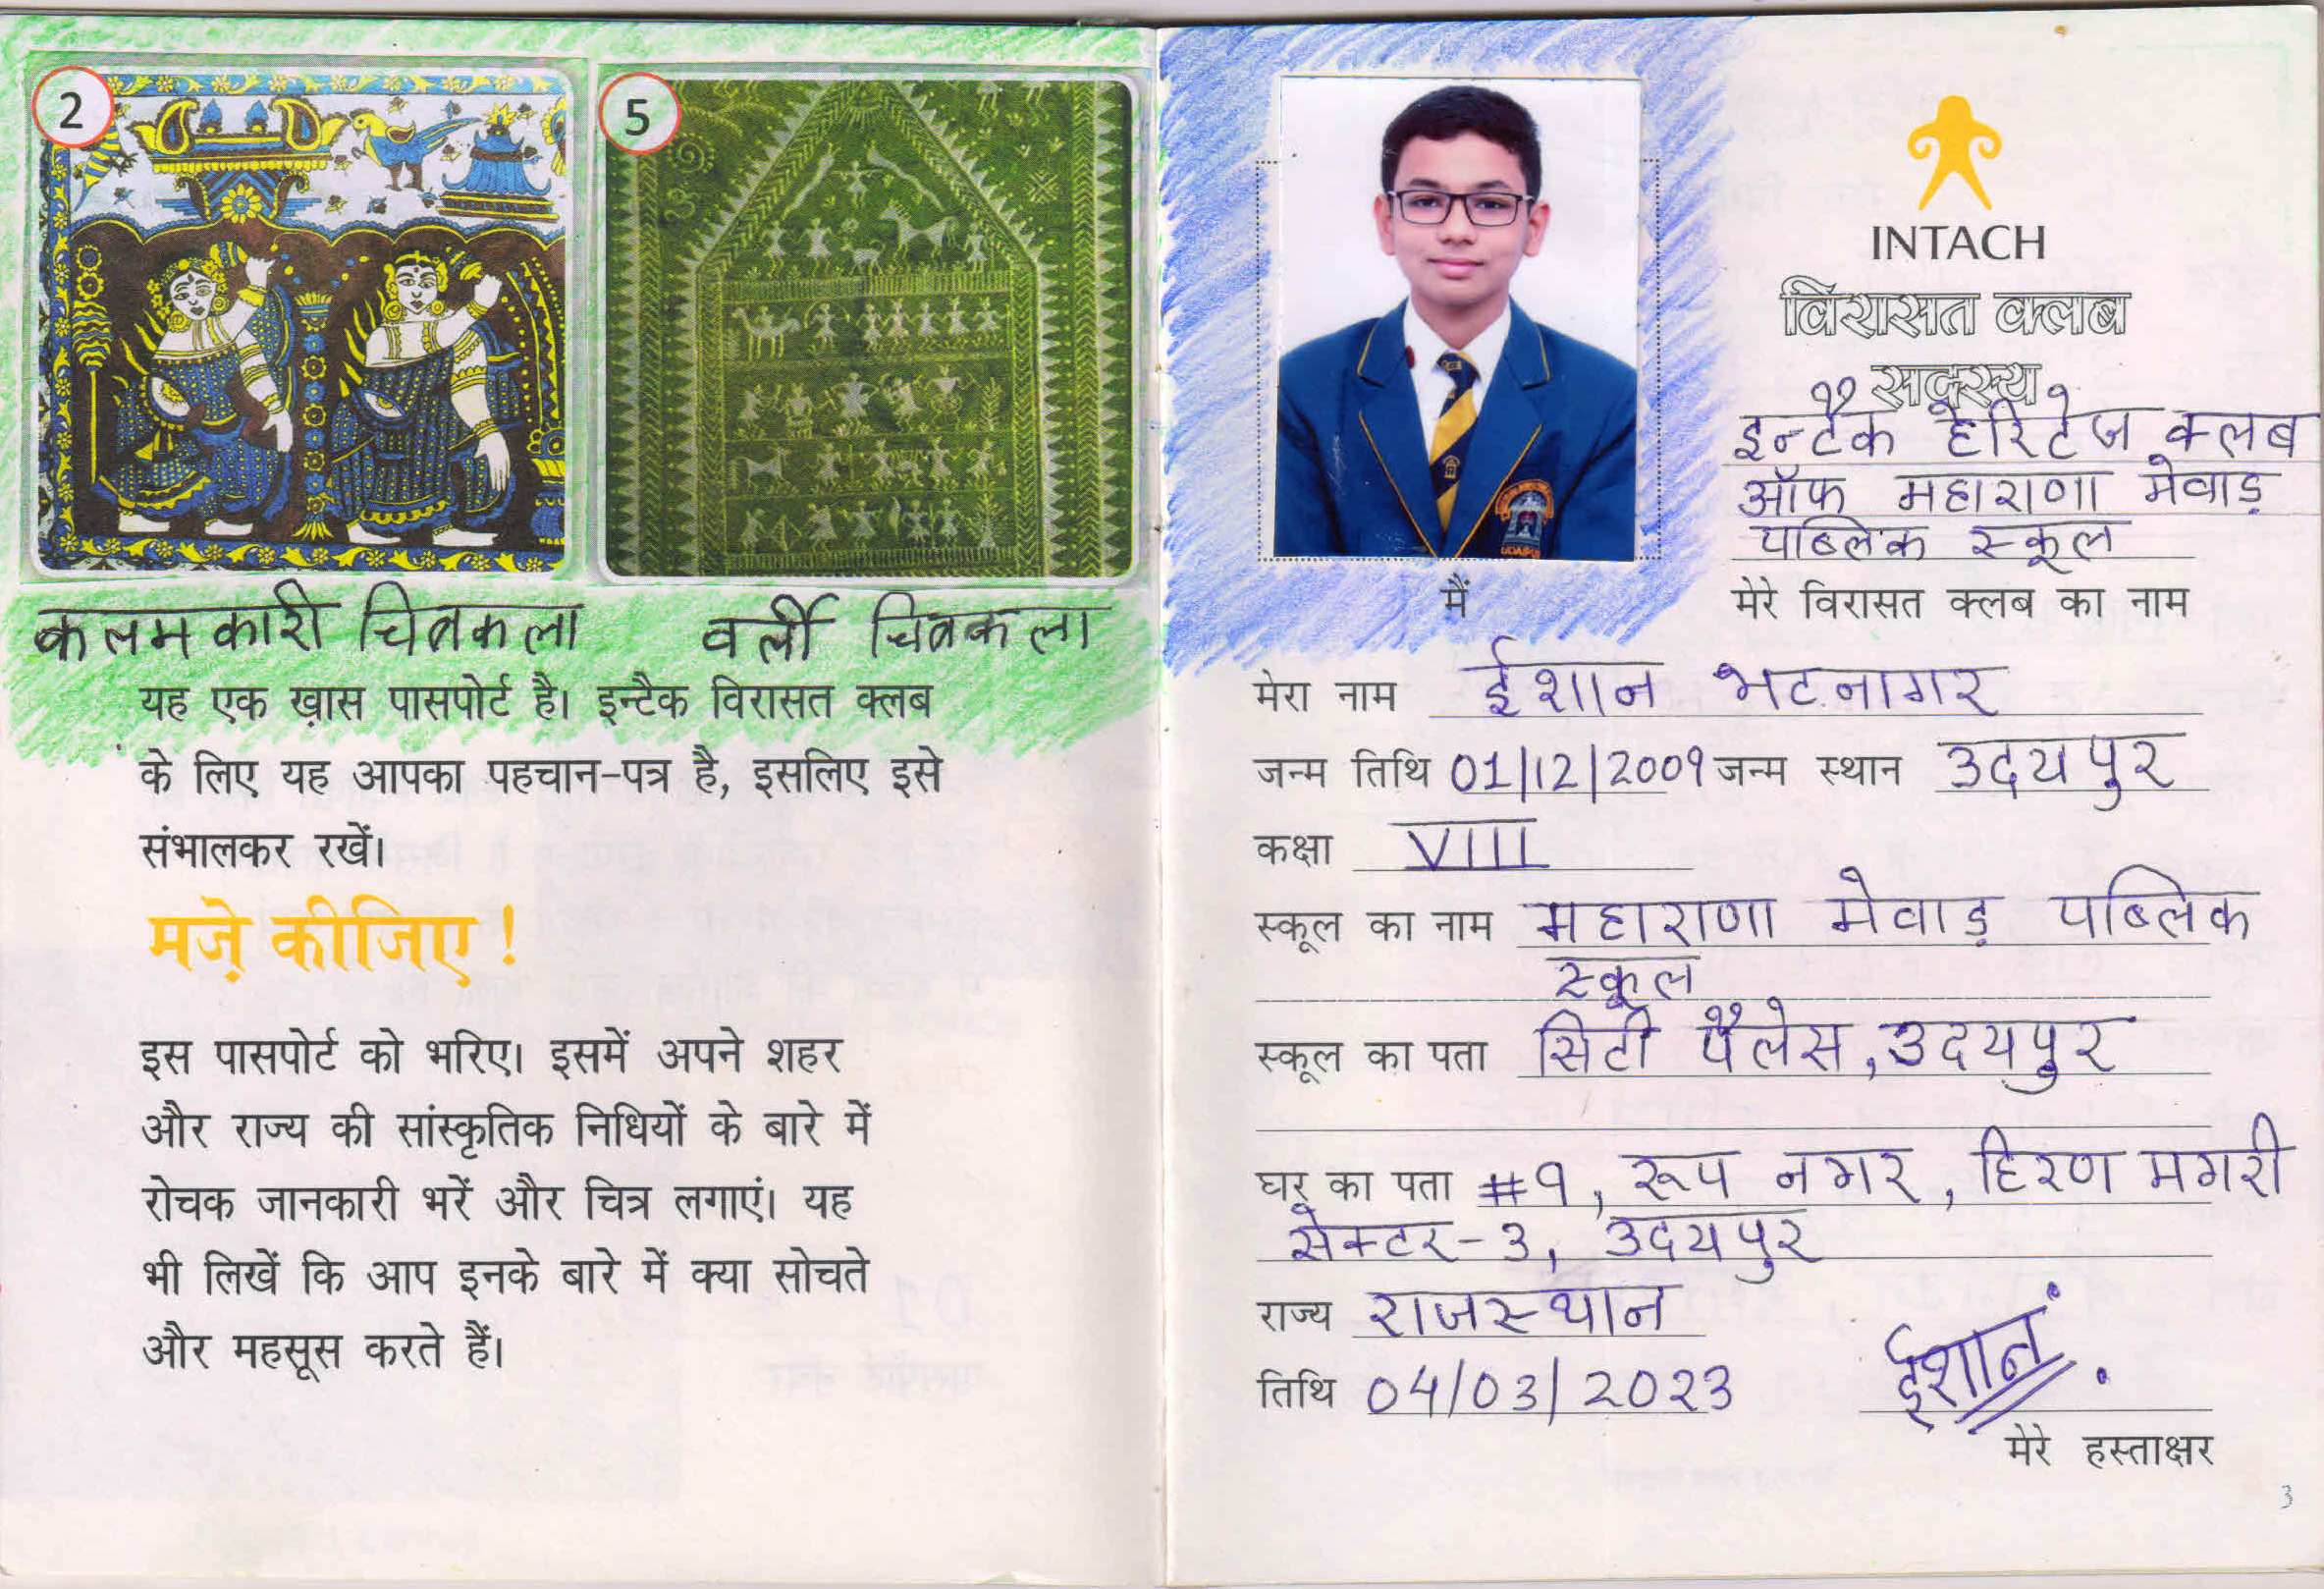 2
5
कलमकारी चित्रकला
वर्ली चित्रकला
यह एक ख़ास पासपोर्ट है। इन्टैक विरासत क्लब
के लिए यह आपका पहचान-पत्र है, इसलिए इसे
संभालकर रखें।
मज़े कीजिए!
इस पासपोर्ट को भरिए। इसमें अपने शहर
और राज्य की सांस्कृतिक निधियों के बारे में
रोचक जानकारी भरें और चित्र लगाएं। यह
भी लिखें कि आप इनके बारे में क्या सोचते
और महसूस करते हैं।
INTACH
विरासत क्लब
सदस्य
इन्टैक हेरिटेज क्लब
ऑफ महाराणा मेवाड़
पब्लिक स्कूल
मैं
मेरे विरासत क्लब का नाम
मेरा नाम ईशान भटनागर
जन्म तिथि 01/12/2009 जन्म स्थान उदयपुर
कक्षा VIII
स्कूल का नाम महाराणा मेवाड़ पब्लिक
स्कूल
स्कूल का पता सिटी पैलेस, उदयपुर
घर का पता #9, रूप नगर, हिरण मगरी
सेक्टर-3, उदयपुर
राज्य राजस्थान
तिथि 04/03/2023
ईशान
मेरे हस्ताक्षर
3